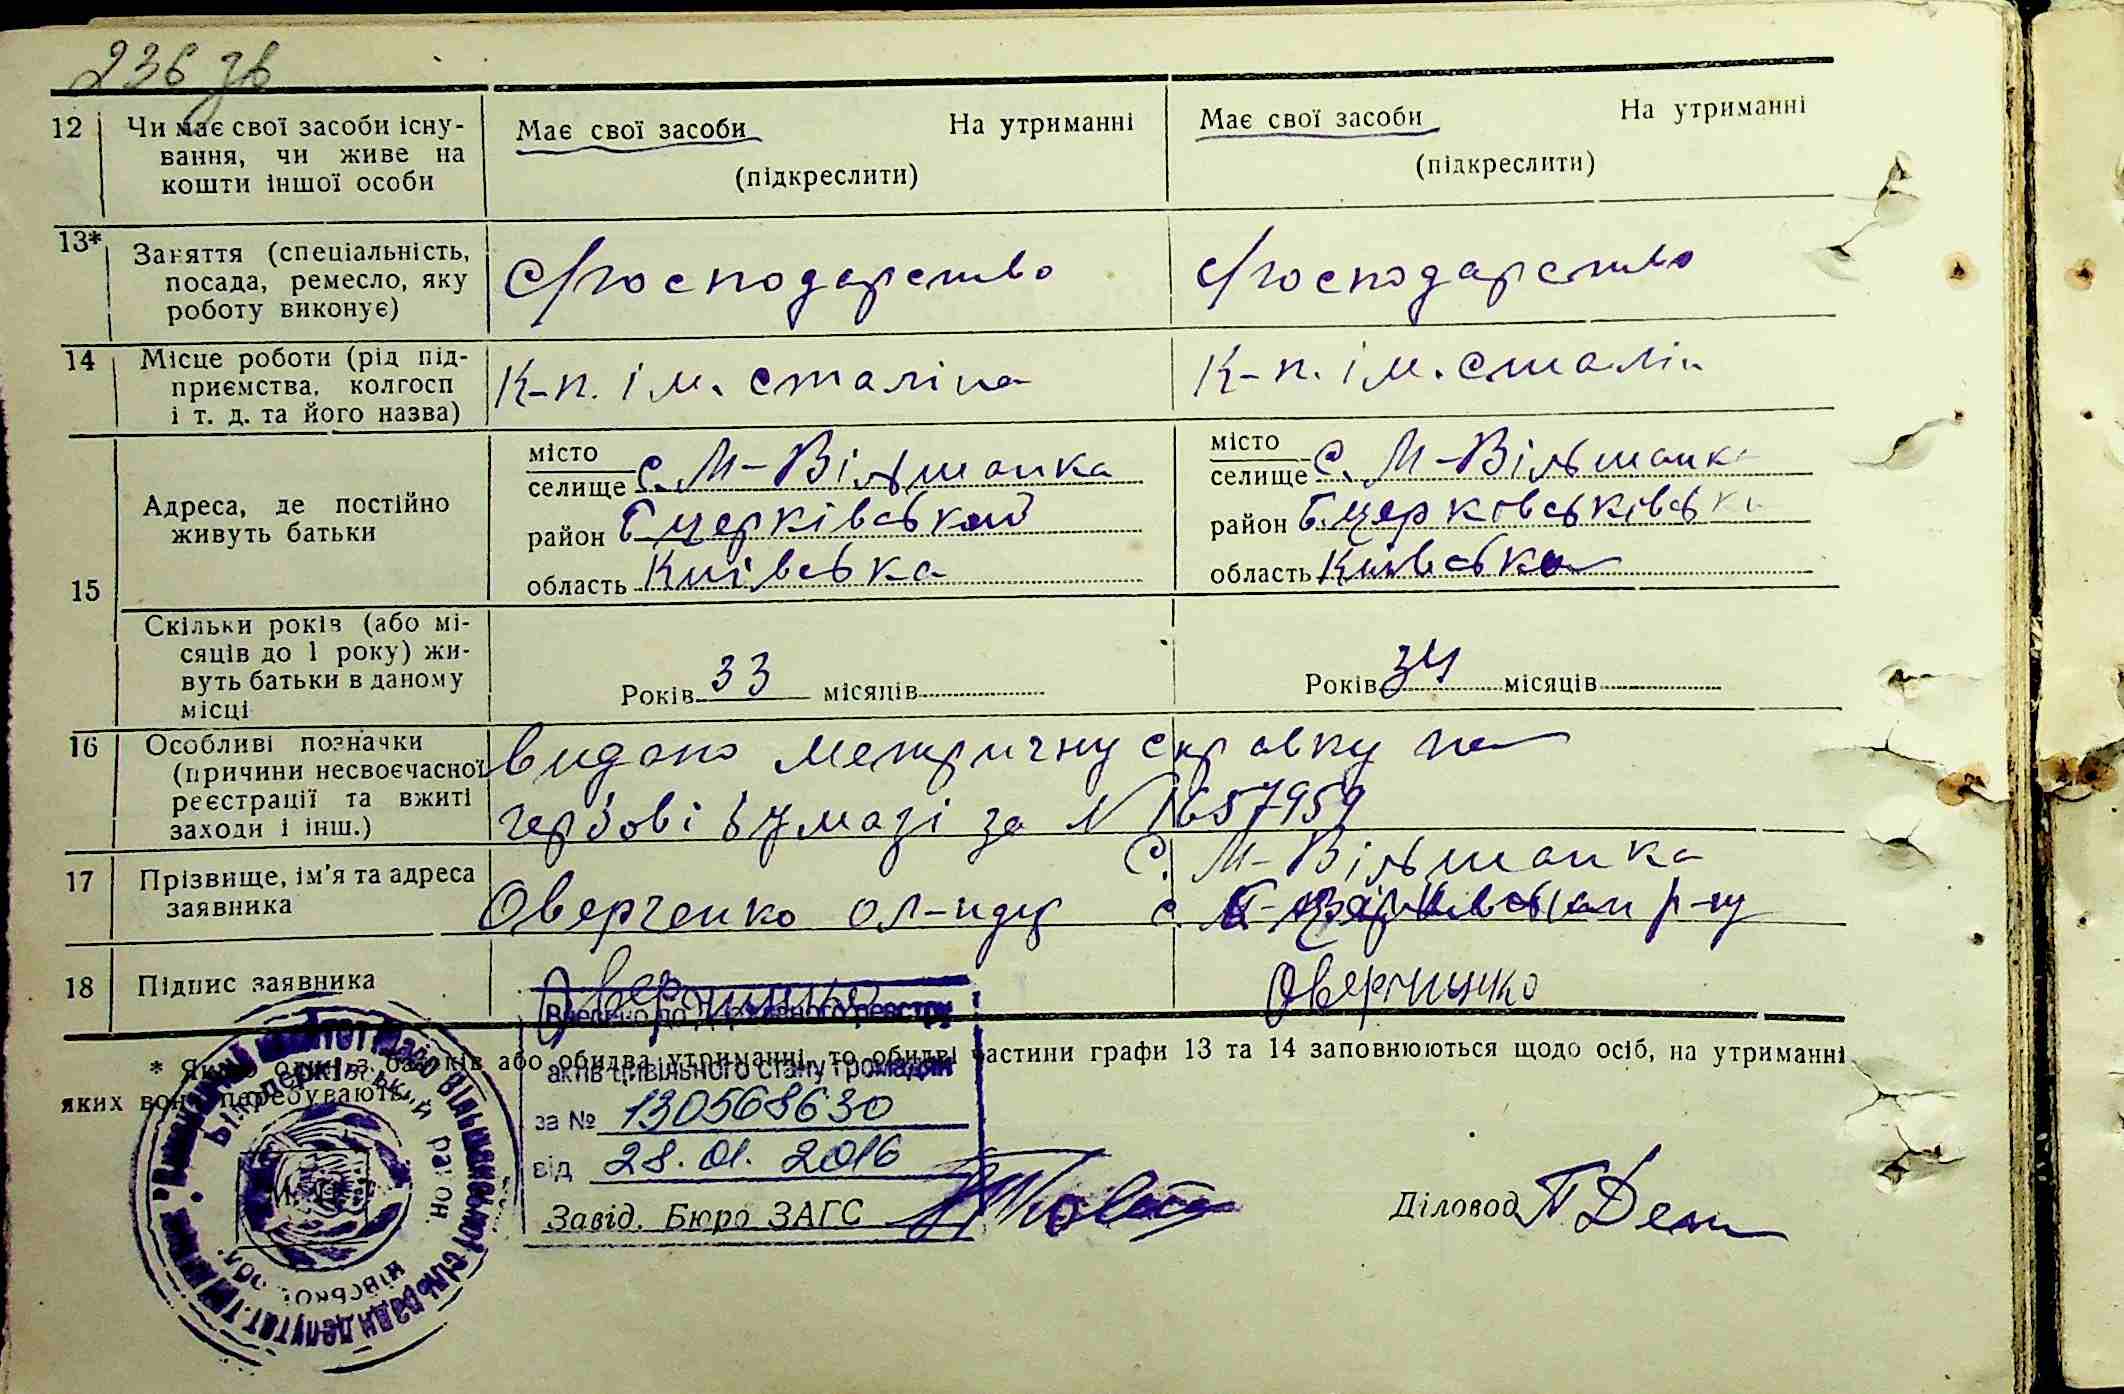 236 зв
12 Чи має свої засоби існу-
вання, чи живе на
кошти іншої особи
Має свої засоби На утриманні
(підкреслити)
Має свої засоби На утриманні
(підкреслити)
13* Заняття (спеціальність,
посада, ремесло, яку
роботу виконує)
С/господарство
С/господарство
14 Місце роботи (рід під-
приємства, колгосп
і т. д. та його назва)
К-п. ім. сталіна
К-п. ім. сталін
15 Адреса, де постійно
живуть батьки
місто
селище с. М-Вільшанка
район Б церківський
область Київська
місто
селище с. М-Вільшанка
район Б. церковськівськи
область Київська
Скільки років (або мі-
сяців до 1 року) жи-
вуть батьки в даному
місці
Років 33 місяців
Років 34 місяців
16 Особливі позначки
(причини несвоєчасної
реєстрації та вжиті
заходи і інш.)
видано метричну справку на
гербові бумазі за N 1657959
17 Прізвище, ім'я та адреса
заявника
с. М-Вільшанка
Оверченко ол-ндр с. р-ну
18 Підпис заявника
Оверчинко
* Якщо один з батьків або обидва утриманні, то обидві частини графи 13 та 14 заповнюються щодо осіб, на утриманні
яких вони перебувають.
Внесено до Державного реєстру
актів цивільного стану громадян
за № 130568630
від 28.01.2016
Завід. Бюро ЗАГС
Діловод